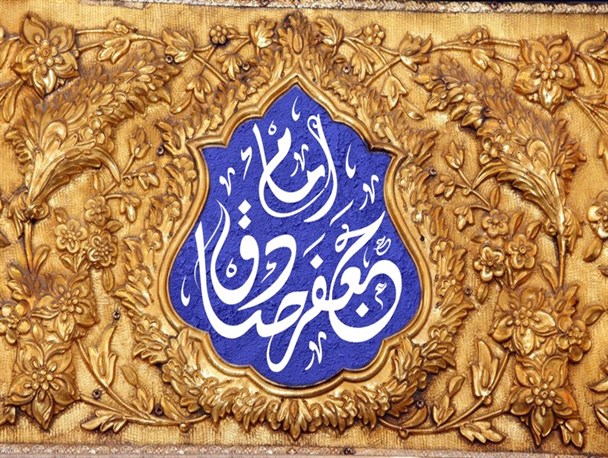 امام
جعفر صادق
ع